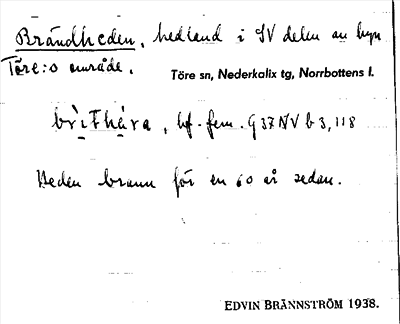 Brändheden, hedland i SV delen av byn
Töre:s område.
Töre sn, Nederkalix tg, Norrbottens l.
bf. fem. G 37 NV b 3, 118
Heden brann för en 60 år sedan.
EDVIN BRÄNNSTRÖM 1938.